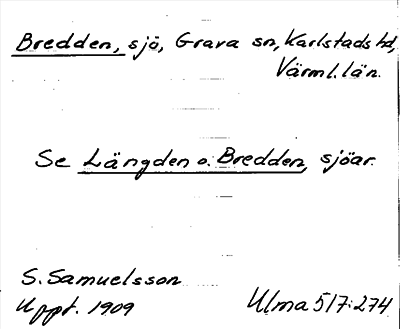 Bredden, sjö, Grava sn, Karlstads hd,
Värml. län.
Se Längden o. Bredden, sjöar.
S. Samuelsson
Uppt. 1909
Ulma 517:274